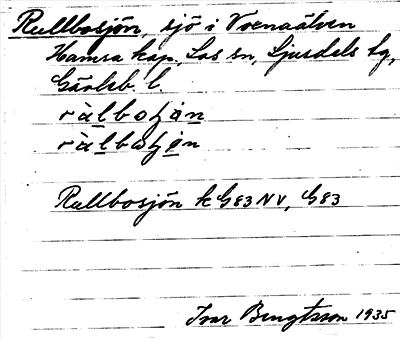 Rullbosjön, sjö i Voxnaälven
Hamra kap. Los sn, Ljusdals tg,
Gävleb. l.
Rullbosjön k G83 NV, G83
Ivar Bengtsson 1935